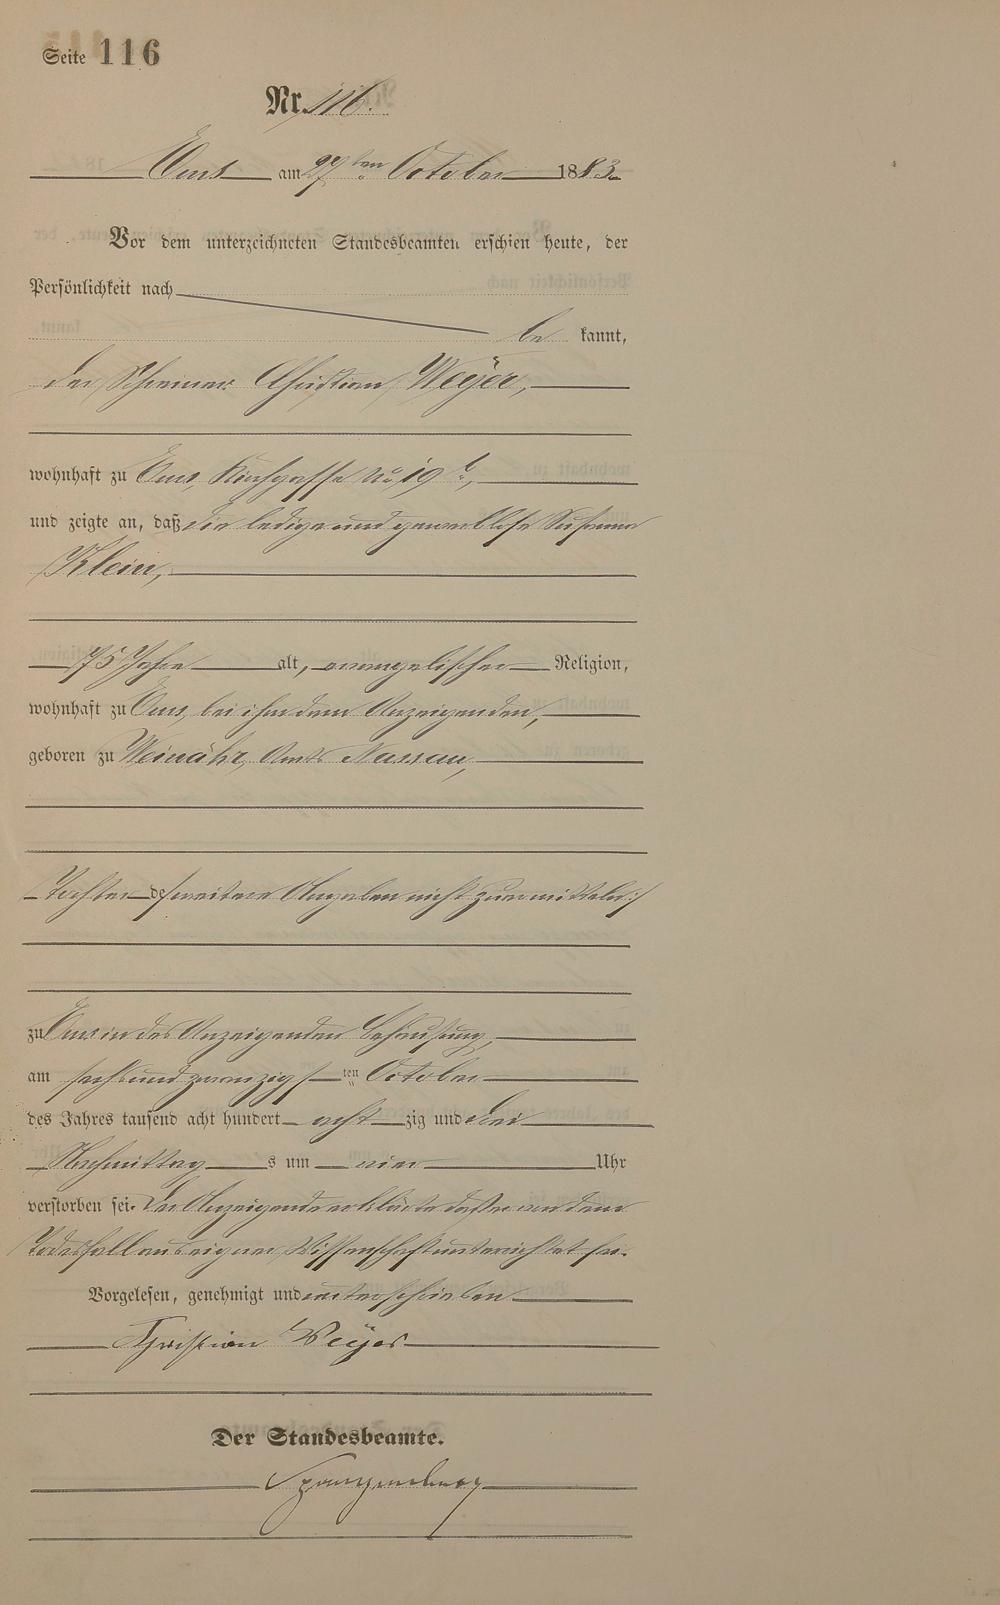 Seite 116
Nr. 116.
Ems am 27ten October 1883.
Vor dem unterzeichneten Standesbeamten erschien heute, der
Persönlichkeit nach
be kannt,
der Schreiner Christian Weyer,
wohnhaft zu Ems, Kirchgasse No 19 b,
und zeigte an, daß die ledige und gewerblose Susanna
Klein,
75 Jahre alt, evangelischer Religion,
wohnhaft zu Ems, bei ihm dem Anzeigenden,
geboren zu Weinähr, Amts Nassau,
Tochter de weitere Angaben nicht zu ermitteln
zu Ems in des Anzeigenden Behausung,
am sechsundzwanzigsten October
des Jahres tausend acht hundert acht zig und drei
Nachmittags um vier Uhr
verstorben sei. Der Anzeigende erklärte daß er von dem
Todesfall aus eigner Wissenschaft unterrichtet sei.
Vorgelesen, genehmigt und unterschrieben
Christian Weyer
Der Standesbeamte.
Spangenberg